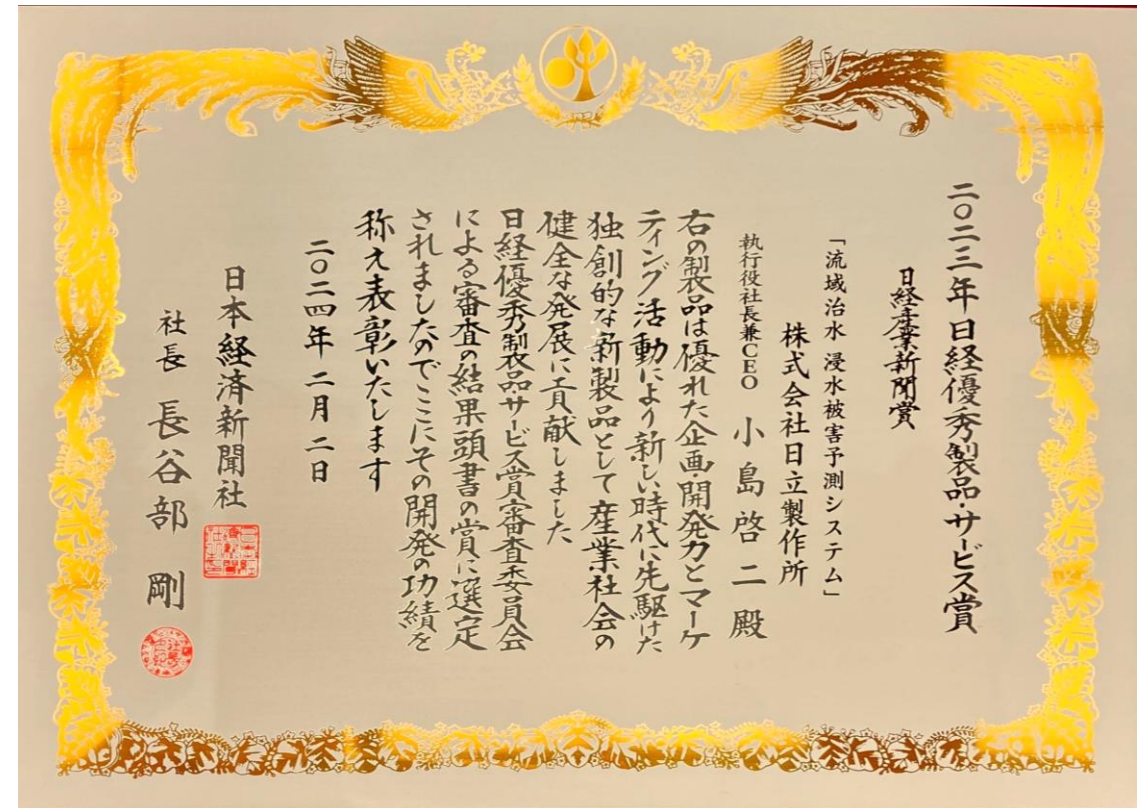 二〇二三年日経優秀製品・サービス賞
日経産業新聞賞
「流域治水 浸水被害予測システム」
株式会社日立製作所
執行役社長兼CEO 小島啓二殿
右の製品は優れた企画・開発力とマーケ
ティング活動により新しい時代に先駆けた
独創的な新製品として産業社会の
健全な発展に貢献しました
日経優秀製品サービス賞審査委員会
による審査の結果頭書の賞に選定
されましたのでここにその開発の功績を
称え表彰いたします
二〇二四年二月二日
日本経済新聞社
社長 長谷部 剛